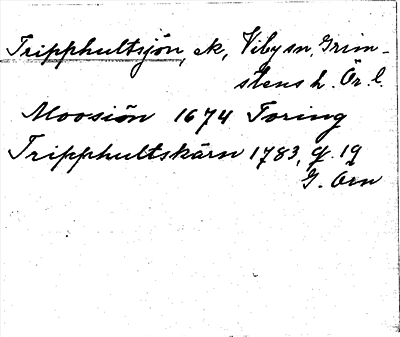 Tripphultsjön, ek, Viby sn, Grim-
stens h. Ör. l.
Moosiön 1674 Toring
Tripphultskärn 1783, q. 19
G. Orn